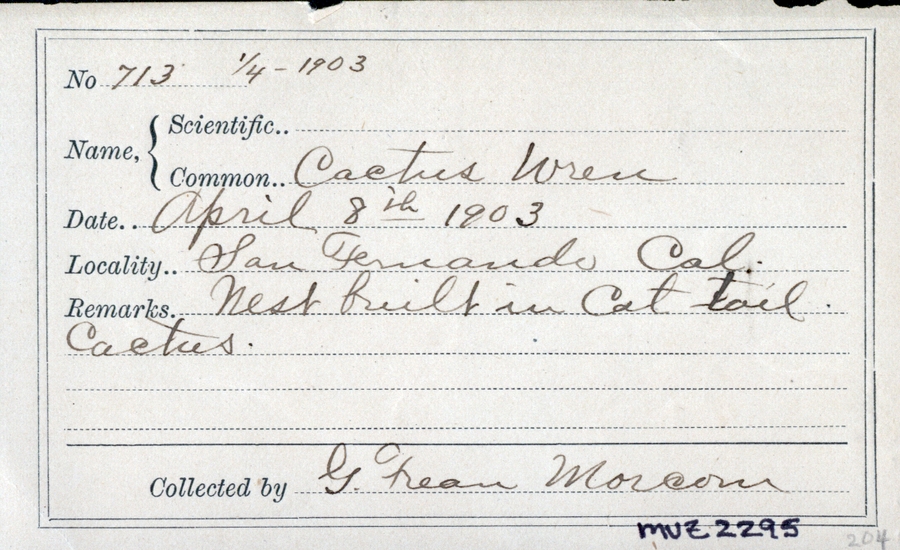 No 713 1/4 - 1903
Name, { Scientific..
Common.. Cactus Wren
Date.. April 8th 1903
Locality.. San Fernando Cal.
Remarks. Nest built in Cat tail.
Cactus.
Collected by G. Frean Morcom
MVZ 2295
204